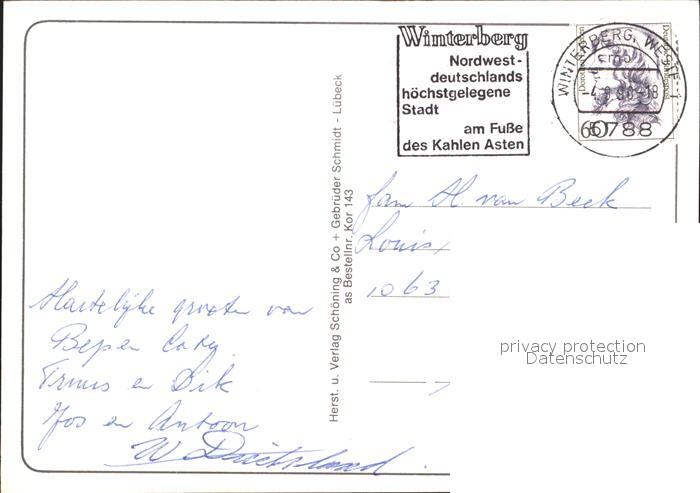 Winterberg
Nordwest-
deutschlands
höchstgelegene
Stadt
am Fuße
des Kahlen Asten
WINTERBERG, WESTF 1
60
5788
Herst. u. Verlag Schöning & Co + Gebrüder Schmidt - Lübeck
as Bestellnr. Kor 143
fam H. van Beek
Louis
1063
Hartelijke groeten van
Bep en Coby
Truus en Dik
Jos en Antoon
W Duitsland.
privacy protection
Datenschutz